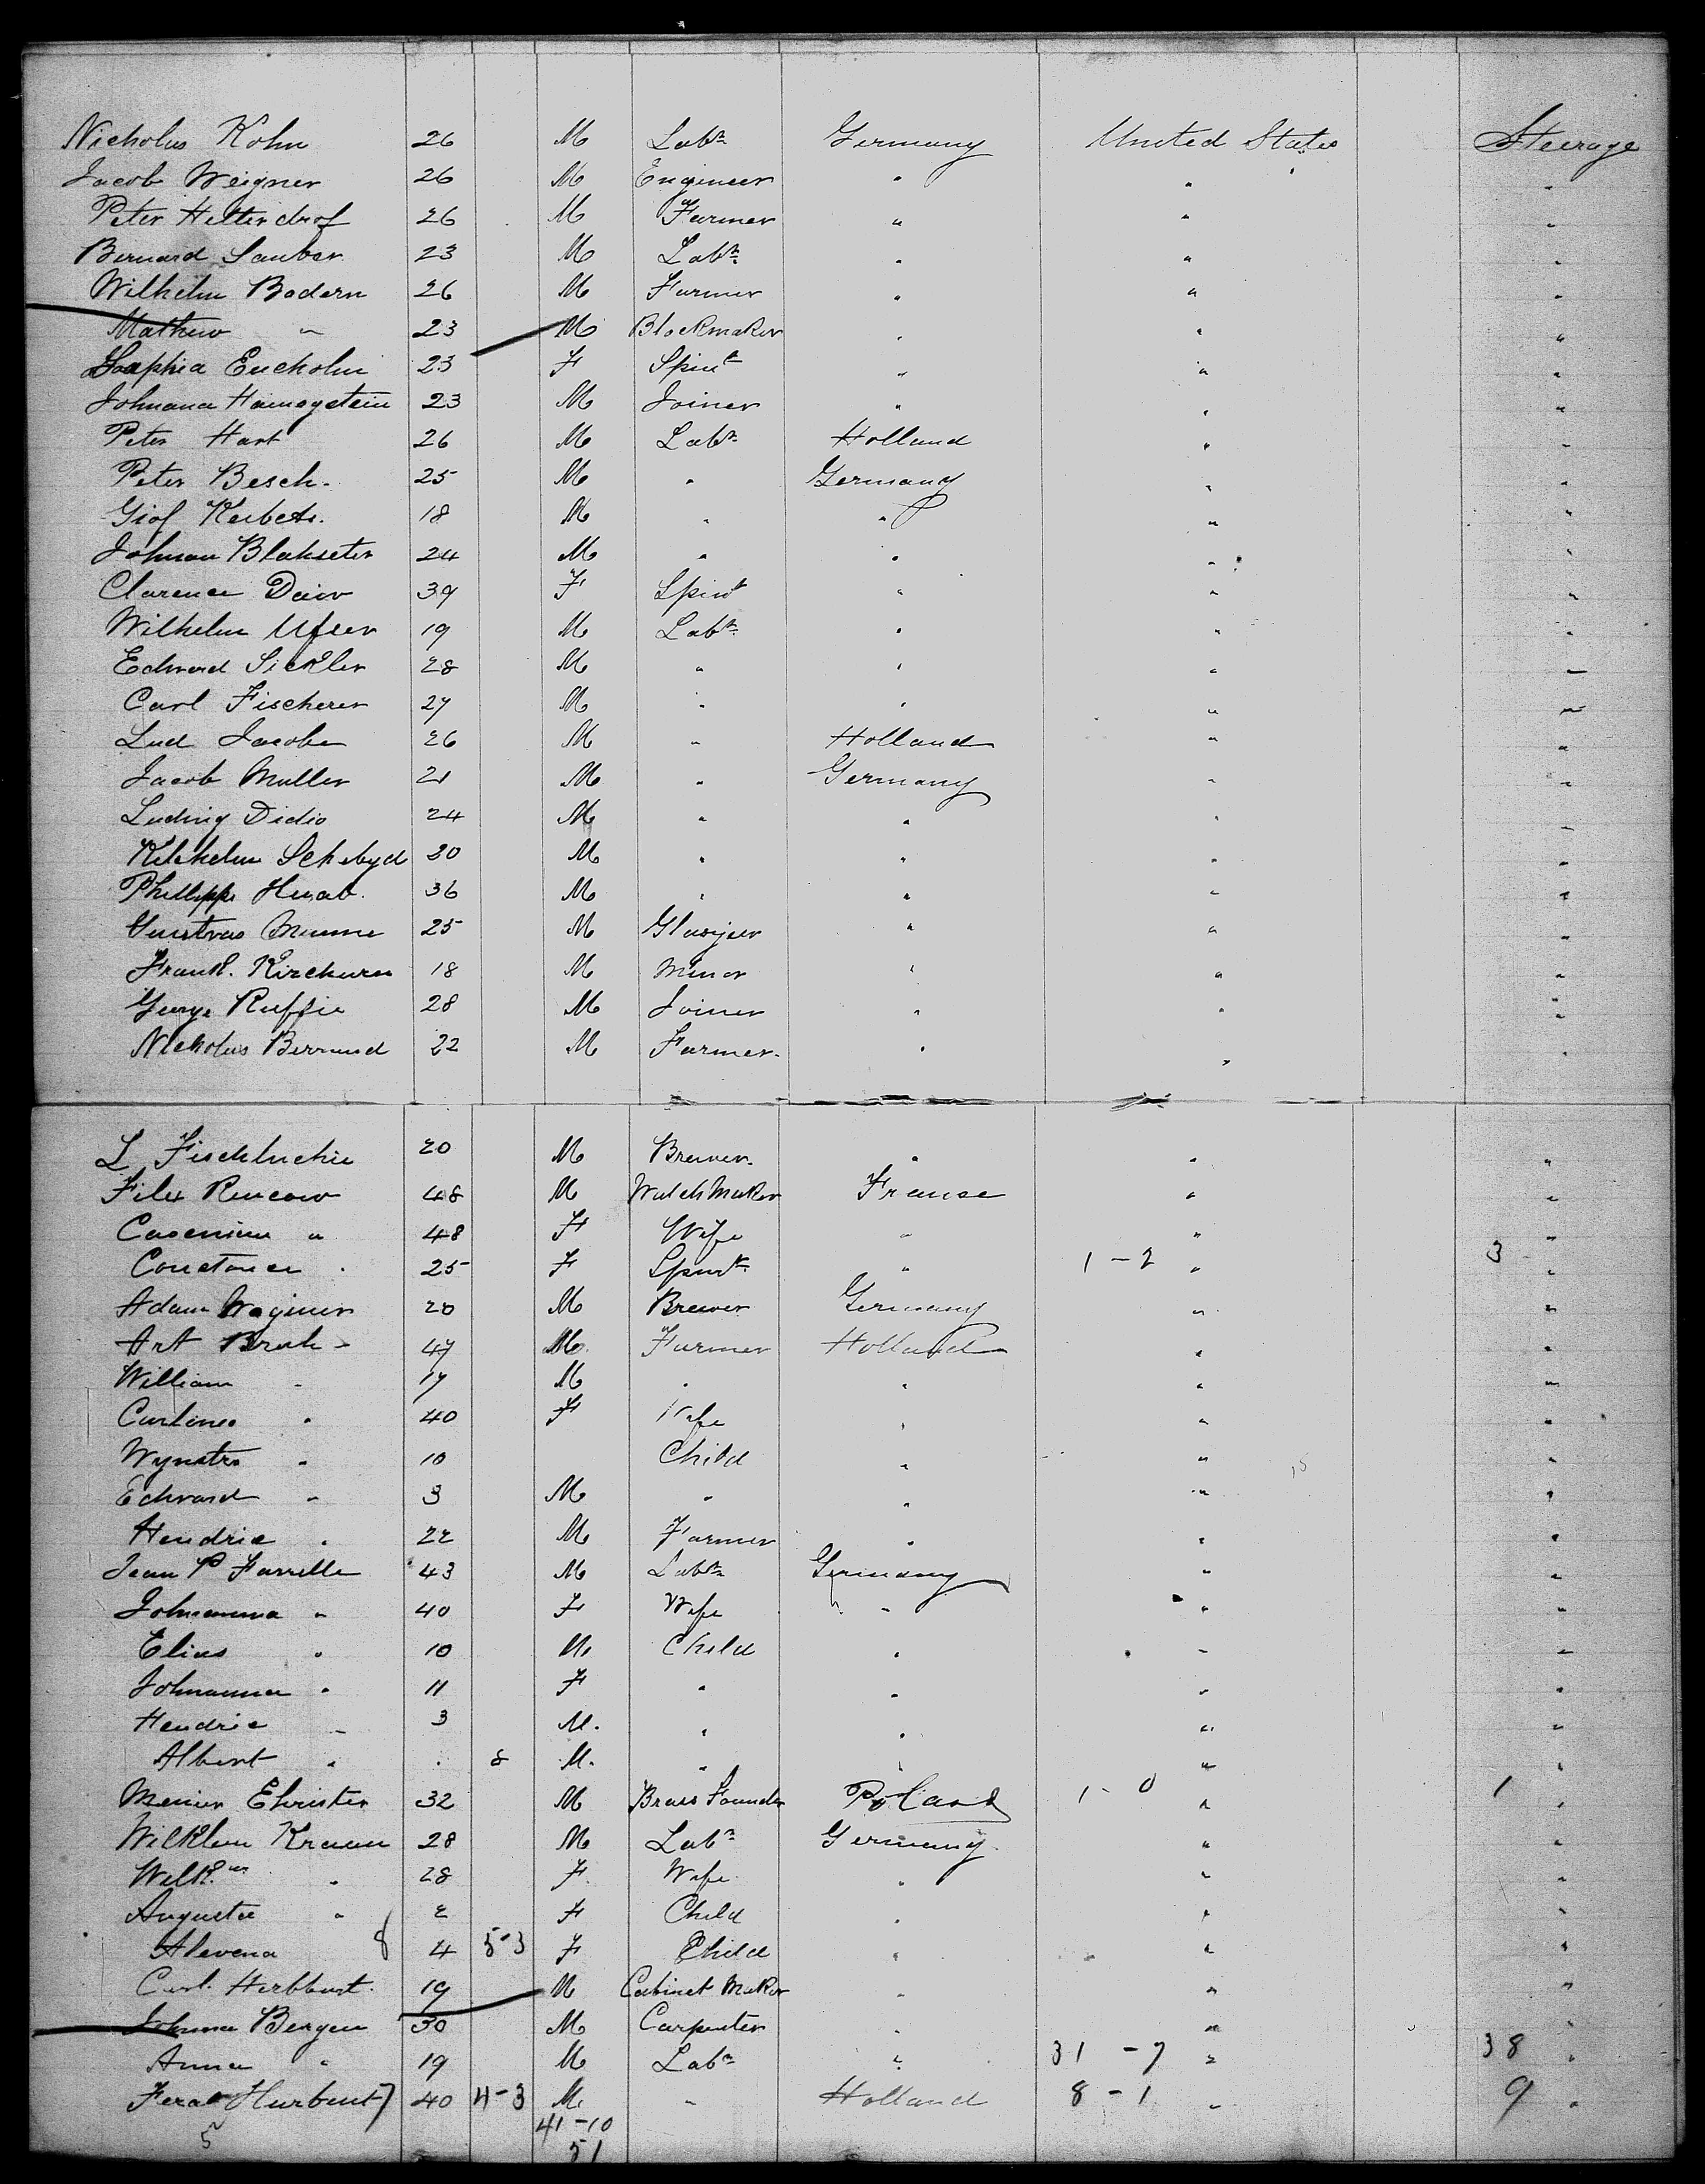 Nicholas Kohn 26 M Labr Germany United States Steerage
Jacob Weigner 26 M Engineer " " "
Peter Hetterdrof 26 M Farmer " " "
Bernard Sauber 23 M Labr " " "
Wilhelm Badern 26 M Farmer " " "
Mathew " 23 M Blockmaker " " "
Saphia Eucholm 23 F Spint " " "
Johnana Hamogstein 23 M Joiner " " "
Peter Hart 26 M Labr Holland " "
Peter Besch. 25 M " Germany " "
18 M " " " "
Johnan Blakseter 24 M " " " "
Clarence 39 F Spint " " "
Wilhelm 19 M Labr " " "
Edward Sickler 28 M " " " "
Carl Fischerer 27 M " " " "
Lud Jacobs 26 M " Holland " "
Jacob Muller 21 M " Germany " "
Ludwig Didio 24 M " " " "
Schebyd M " " " "
Phillipp 36 M " " " "
25 M " " "
Frank. Kirchurn 18 M Minor " " "
George 28 M Joiner " " "
Nicholas Berrand 22 M Farmer. " " "
L 20 M Brewer. " " "
Filex 48 M Watch Maker Franse " "
" 48 F Wife " " "
Constance " 25 F Spint " 1-2 " 3 "
Adam Wagnur 20 M Brewer Germany " "
Art Brak " 47 M. Farmer Holland " "
William " 17 M " " " "
Carline " 40 F Wife " " "
Wynatrs " 10 Child " " "
Edward " 3 M " " " "
Hendrie " 22 M Farmer " " "
Jean P Farrelle 43 M Labr Germany " "
Johnanna " 40 F Wife " " "
Elias " 10 M Child " " "
Johnanna " 11 F " " " "
Hendrie " 3 M. " " " "
Albert " " 8 M. " " " "
Ehrister 32 M Brass Founder Poland 1-0 " 1 "
Wilklem Kraun 28 M Labr Germany " "
Wilkm " 28 F. Wife " " "
Augusta " 2 F Child " " "
Alevena 8 4 5-3 F Child " " "
Carl. Herbburt. 19 M Cabinet Maker " " "
Johnna Bergen 30 M Carpenter " " "
Anna " 19 M Labr " 31-7 " 38 "
Hurbunt 7 40 4-3 M. " Holland 8-1 " 9 "
5 41-10
51